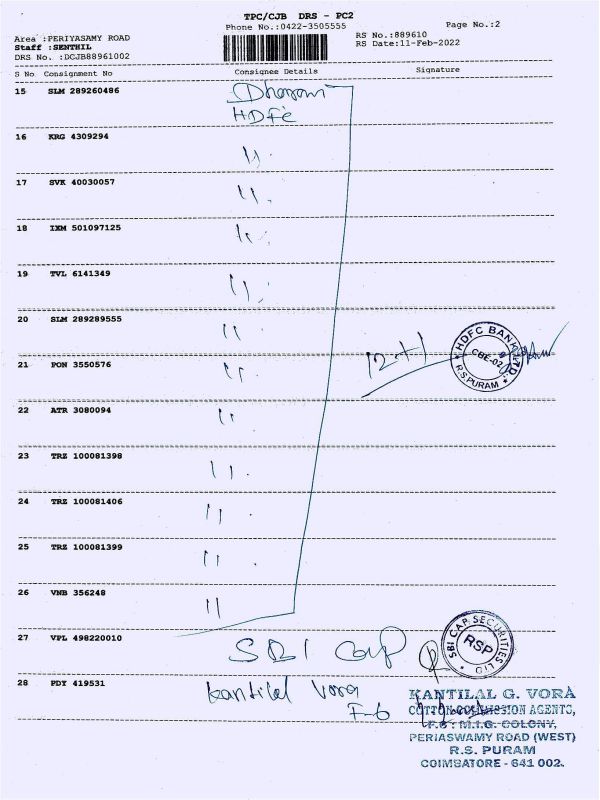 TPC/CJB DRS - PC2
Phone No.:0422-3505555
Page No.:2
Area :PERIYASAMY ROAD
RS No.:889610
Staff :SENTHIL
RS Date:11-Feb-2022
DRS No. :DCJB88961002
S No Consignment No Consignee Details Signature
15 SLM 289260486
HDFC
16 KRG 4309294 〃
17 SVK 40030057 〃
18 IXM 501097125 〃
19 TVL 6141349 〃
20 SLM 289289555 〃
12+1
HDFC BANK LTD
CBE-02
R.S.PURAM
21 PON 3550576 〃
22 ATR 3080094 〃
23 TRZ 100081398 〃
24 TRZ 100081406 〃
25 TRZ 100081399 〃
26 VNB 356248 〃
27 VPL 498220010 SBI Cap
SBI CAP SECURITIES LTD
RSP
28 PDY 419531 Kantilal Vora
F-6
KANTILAL G. VORA
COTTON COMMISSION AGENTS,
F.6 : M.I.G. COLONY,
PERIASWAMY ROAD (WEST)
R.S. PURAM
COIMBATORE - 641 002.